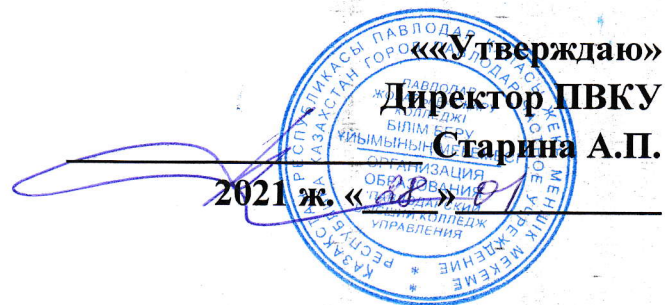 ««Утверждаю»
Директор ПВКУ
Старина А.П.
2021 ж. «28» 01
ҚАЗАҚСТАН РЕСПУБЛИКАСЫ ПАВЛОДАР ҚАЛАСЫ ЖЕКЕ МЕНШІК МЕКЕМЕ
РЕСПУБЛИКА КАЗАХСТАН ГОРОД ПАВЛОДАР УЧРЕЖДЕНИЕ
КОЛЛЕДЖІ
БІЛІМ БЕРУ
ҰЙЫМЫНЫҢ
ОРГАНИЗАЦИЯ
ОБРАЗОВАНИЯ
КОЛЛЕДЖ
УПРАВЛЕНИЯ